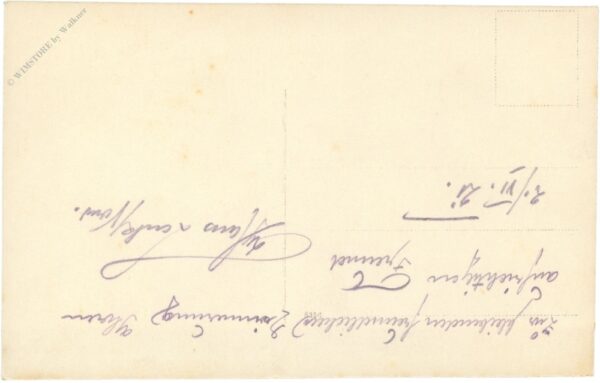 © WIMSTORE by Walkner
Zur bleibenden freundlichen Erinnerung Ihren
aufrichtigen Freund
Hans
2./VI. 21.